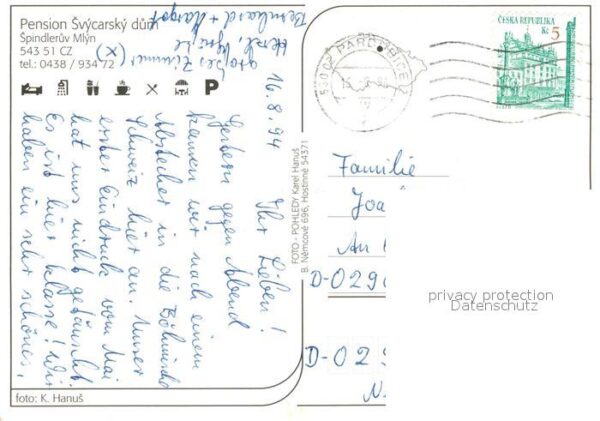 Pension Švýcarský dům
Špindlerův Mlýn
543 51 CZ
tel.: 0438 / 934 72 (x)
P
16.8.94
Ihr Lieben!
Gestern gegen Abend
kamen wir nach einem
Abstecher in die Böhmische
Schweiz hier an. Unser
erster Eindruck vom Mai
hat uns nicht getäuscht.
Es ist hier klasse! Wir
haben ein sehr schönes,
großes Zimmer (x)
Herzl. Grüße
Bernhard + Margot
foto: K. Hanuš
FOTO - POHLEDY Karel Hanuš
B. Němcové 696, Hostinné 54371
PARDUBICE
ČESKÁ REPUBLIKA
Kč 5
Familie
Joa
An
D-029
D-02
privacy protection
Datenschutz